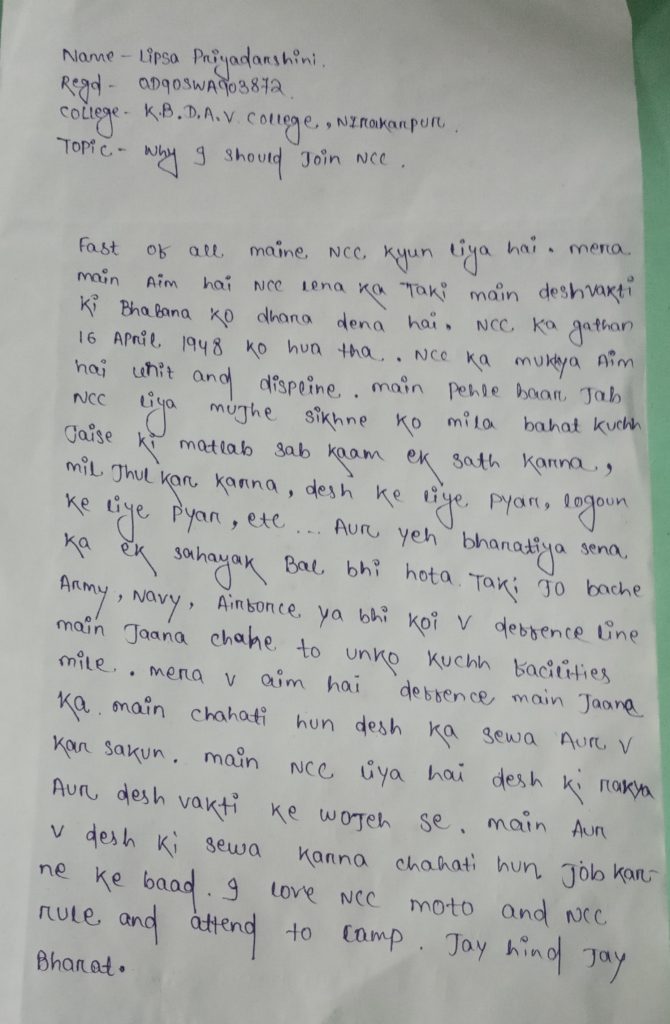 Name - Lipsa Priyadarshini.
Regd - OD90SWA903872
College - K.B.D.A.V. College, Nirakarpur.
Topic - Why I should Join NCC.
Fast of all maine NCC kyun liya hai. mera
main Aim hai NCC lena ka Taki main deshvakti
ki Bhabana ko dhara dena hai. NCC ka gathan
16 April 1948 ko hua tha. NCC ka mukya Aim
hai unit and displine. main pehle baar Jab
NCC liya mujhe sikhne ko mila bahat kuchh
Jaise ki matlab sab kaam ek sath karna,
mil Jhul kar karna, desh ke liye pyar, logoun
ke liye pyar, etc... Aur yeh bharatiya sena
ka ek sahayak Bal bhi hota. Taki Jo bache
Army, Navy, Airforce ya bhi koi v deffence line
main Jaana chahe to unko kuchh facilities
mile. mera v aim hai deffence main Jaana
ka. main chahati hun desh ka sewa Aur v
kar sakun. main NCC liya hai desh ki rakya
Aur desh vakti ke wojeh se. main Aur
v desh ki sewa karna chahati hun Job kar-
ne ke baad. I love NCC moto and NCC
rule and attend to camp. Jay hind Jay
Bharat.